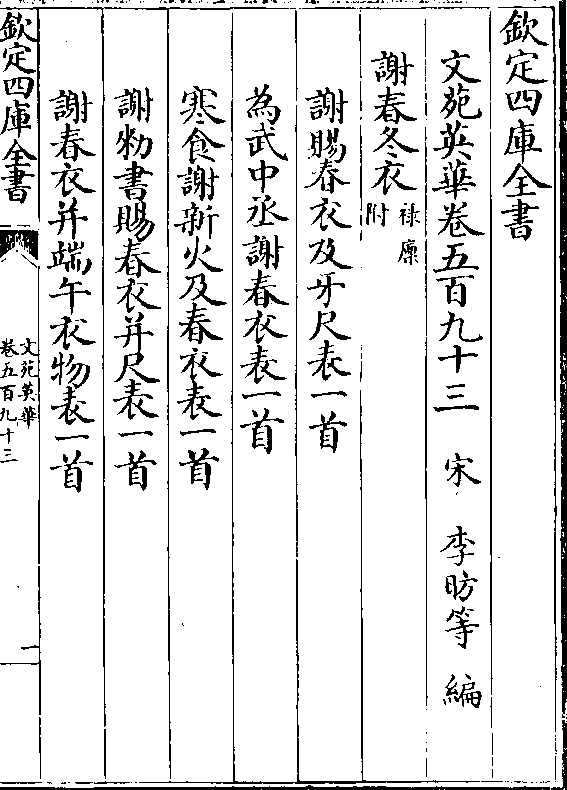 欽定四庫全書
文苑英華卷五百九十三 宋 李昉等 編
謝春冬衣祿廩附
謝賜春衣及牙尺表一首
為武中丞謝春衣表一首
寒食謝新火及春衣表一首
謝勑書賜春衣并尺表一首
謝春衣并端午衣物表一首
欽定四庫全書
文苑英華
卷五百九十三
一